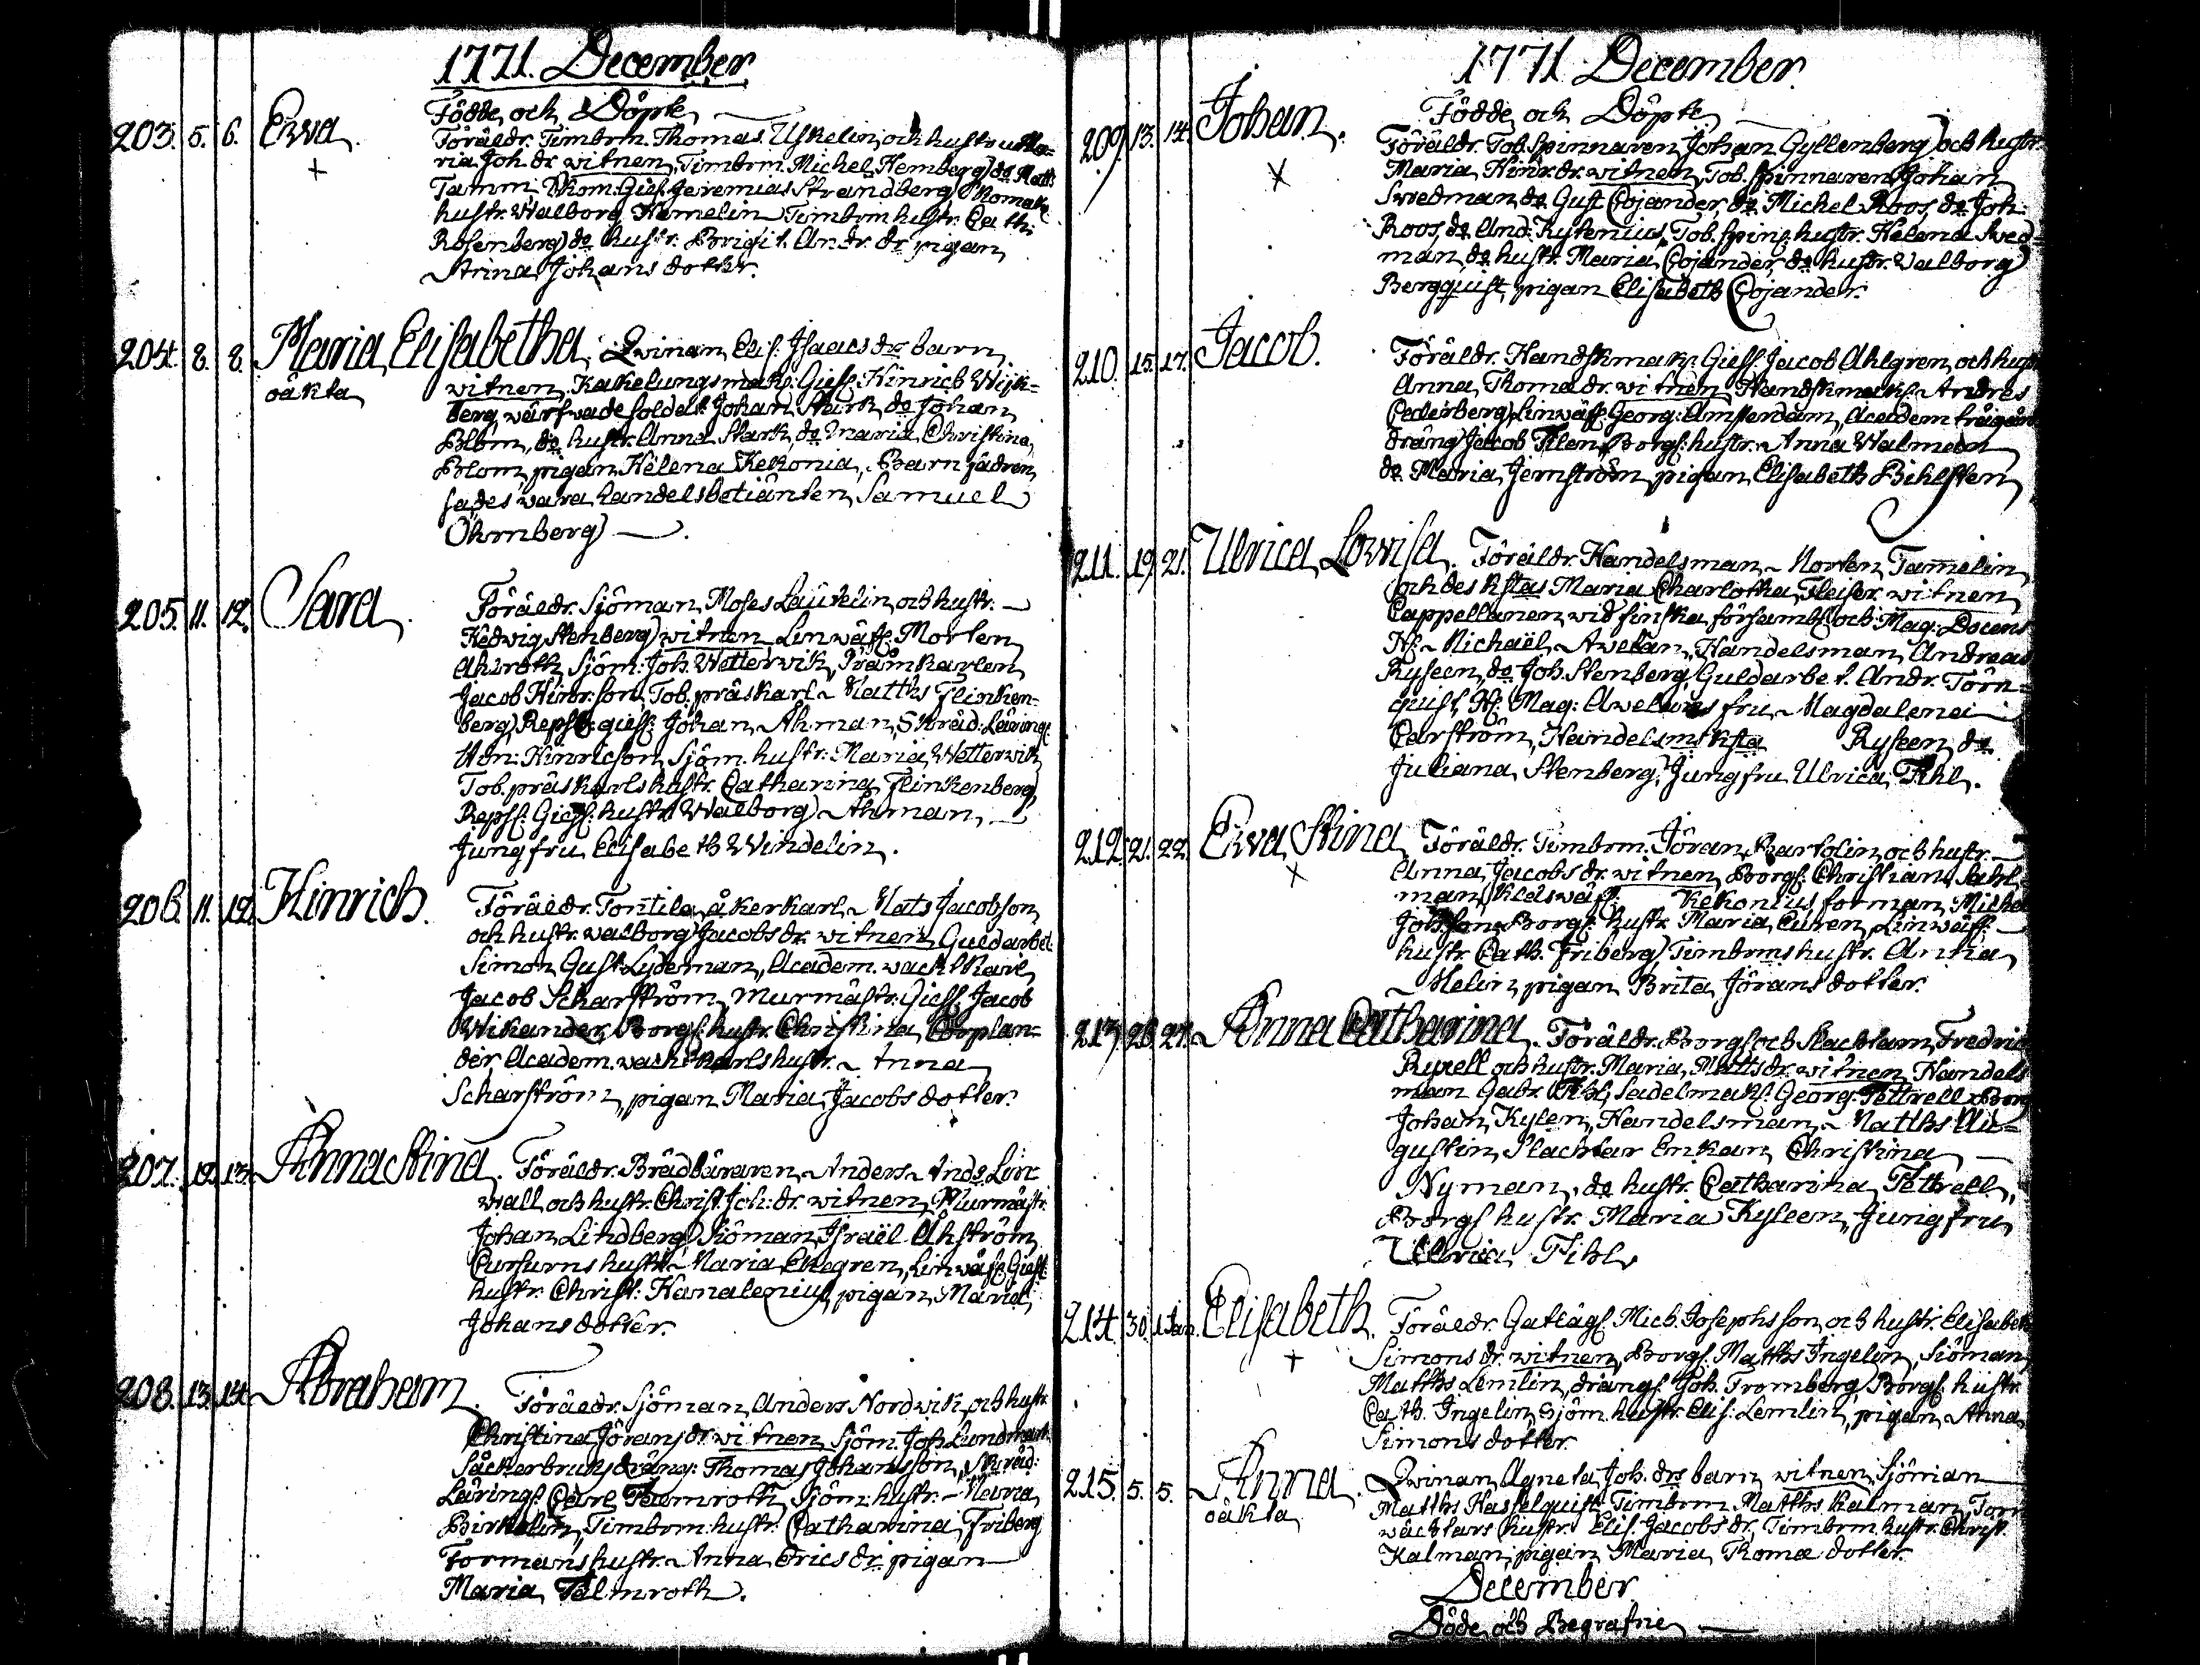 1771. December
Födde och Döpte
203. 5. 6. Ewa. Föräldr. Timbrm. Thomas Uskelin och hustru Ma=
+ ria Joh. dr. witnen, Timbrm. Michel Hemberg, do Matts
Tamm, Skom: Gies. Jeremias Strandberg, Skomak.
hustr. Walborg Hemelin Timbrm hustr. Cath:
Rosenberg, do hustr. Brigit. Andr. dr. pigan
Stina Johans dotter.
204. 8. 8. Maria Elisabetha. Qwinan Elis. Isaacs drs barn
oäkta witnen, Kakelungsmak: Giess: Hinrich Wijk=
berg, wärfwade soldat. Johan Stark do Johan
Blom, do hustr. Anna Stark, do Maria Christina
Blom, pigan Helena Kekonia, Barnfadren
sades wara handelsbetiänten Samuel
Öhrnberg.
205. 11. 12. Sara. Föräldr. Sjöman Moses Laurelin och hustr.
Hedwig Stenberg, witnen Linwäfw. Morten
Ahlroth, Sjöm: Joh. Wetterwik, Pråmkarlen
Jacob Hinr: son, Tob. präskarl. Matths Flinken=
berg, Reps: giess: Johan Ahman, Skräd: Lärings:
Hinricson, Sjöm. hustr: Maria Wetterwik
Tob. präskarls hustr. Catharina Flinkenberg,
Reps: Giess: hustr. Walborg Ahman,
Jungfru Elisabeth Windelin.
206. 11. 12. Hinrich. Föräldr. Tontila åkerkarl Mats Jacobson
och hustr. Walborg Jacobs dr. witnen, Guldarbet:
Simon Gust. Lydeman, Academ. wachtkarl
Jacob Scharström, Murmästr: Giess: Jacob
Wikander, Borgs. hustr. Christina Coplan=
der, Academ. wachtkarls hustr. Anna
Scharström, pigan Maria Jacobs dotter.
207. 12. 13. Anna Stina. Föräldr. Brädbäraren Anders Andr. Lin
wall och hustr. Christ. Joh: dr. witnen, Murmästr.
Johan Lindberg, Siöman Israël Ahström,
hustr. Maria Ekegren, Linwäfw. Giess:
hustr: Christ: Kanalenius, pigan Maria
Johans dotter.
208. 13. 14. Abraham. Föräldr. Sjöman Anders Nordwik, och hustr.
Christina Jörans dr. witnen, Sjöm. Joh. Lundmark
Såckerbruks dräng: Thomas Johansson, Skräd:
Lärings: Carl Thamroth, Sjöm: hustr. Maria
Birkelin, Timbrm: hustr. Catharina Friberg
Formans hustr. Anna Erics dr. pigan
Maria Talmroth.
1771 December
Födde och Döpte
209. 13. 14. Johan. Föräldr. Tob. Spinnaren Johan Gyllenberg och hustr.
x Maria Hinr. dr. witnen, Tob. Spinnaren Johan
Swedman, do Gust Cojander, do Michel Roos, do Joh:
Roos, do And: Rytenius, Tob. Spins: hustr. Helena Swed=
man, do hustr. Maria Cojander, do hustr. Walborg
Bergquist, pigan Elisabeth Cojander.
210. 15. 17. Jacob. Föräldr. Handskmak: Giess. Jacob Ahlgren, och hustr
Anna Thoma dr. witnen Handskmak: Andres
Cederberg, Linwäfw. Georg: Amsterdam, Academ trägårds
dräng Jacob Filen, Borgs: hustr. Anna Walmeen
do Maria Jernström, pigan Elisabeth Bihlsten
211. 19. 21. Ulrica Lowisa. Föräldr. Handelsman Morten Tamelin
och des Kstas Maria Charlotha Fleiser. witnen
Cappellanen wid finska församl: och Mag: Docens
H: Michaël Avelan, Handelsman Andreas
Ryseen, do Joh. Stenberg, Guldarbet. Andr. Törn=
quist, H: Mag: Awellans fru Magdalena
Carström, Handelsmskstа Ryseen, do
Juliana Stenberg, Jungfru Ulrica Tihl.
212. 21. 22. Ewa Stina Föräldr. Timbrm. Jöran Bartolin och hustr.
x Anna Jacobs dr. witnen, Borgs. Christian Sahl=
man, Klädswäfw. Kekonius, forman Michel
Johsson, Borgs. hustr. Maria Curen, Linwäfw.
hustr Cath. Friberg, Timbrms hustr. Anna
Melin, pigan Brita Jörans dotter.
213. 26. 27. Anna Catharina. Föräldr. Borgs och Slachtarn Fredric
Ryxell och hustr. Maria Matts dr. witnen, Handels
man Gabr. Tihl, Sadelmak: Georg Tettrell, Borg
Johan Kylen, Handelsman Matths Au=
gustin, Slachtar Enkan Christina
Nyman, do hustr. Catharina Tettrell,
Borgs hustr. Maria Kyleen, Jungfru
Ulrica Tihl.
214. 30. 1 Jan. Elisabeth. Föräldr. Gatlägg. Mich. Josephsson och hustr. Elisabeth
+ Simons dr. witnen, Borgs. Matths Ingelin, Siöman
Matths Lemlin, drängs. Joh. Tromberg, Borgs. hustr
Cath. Ingelin, Sjöm. hustr. Elis: Lemlin, pigan Anna
Simons dotter.
215. 5. 5. Anna. Qwinan Agneta Joh. drs barn witnen, Sjöman
oäkta Matths Hasselquist, Timbrm Matths Kalman, Torn
wächtars hustr. Elis. Jacobs dr, Timbrm. hustr. Christ.
Kalman, pigan Maria Thomæ dotter.
December
Döde och Begrafne